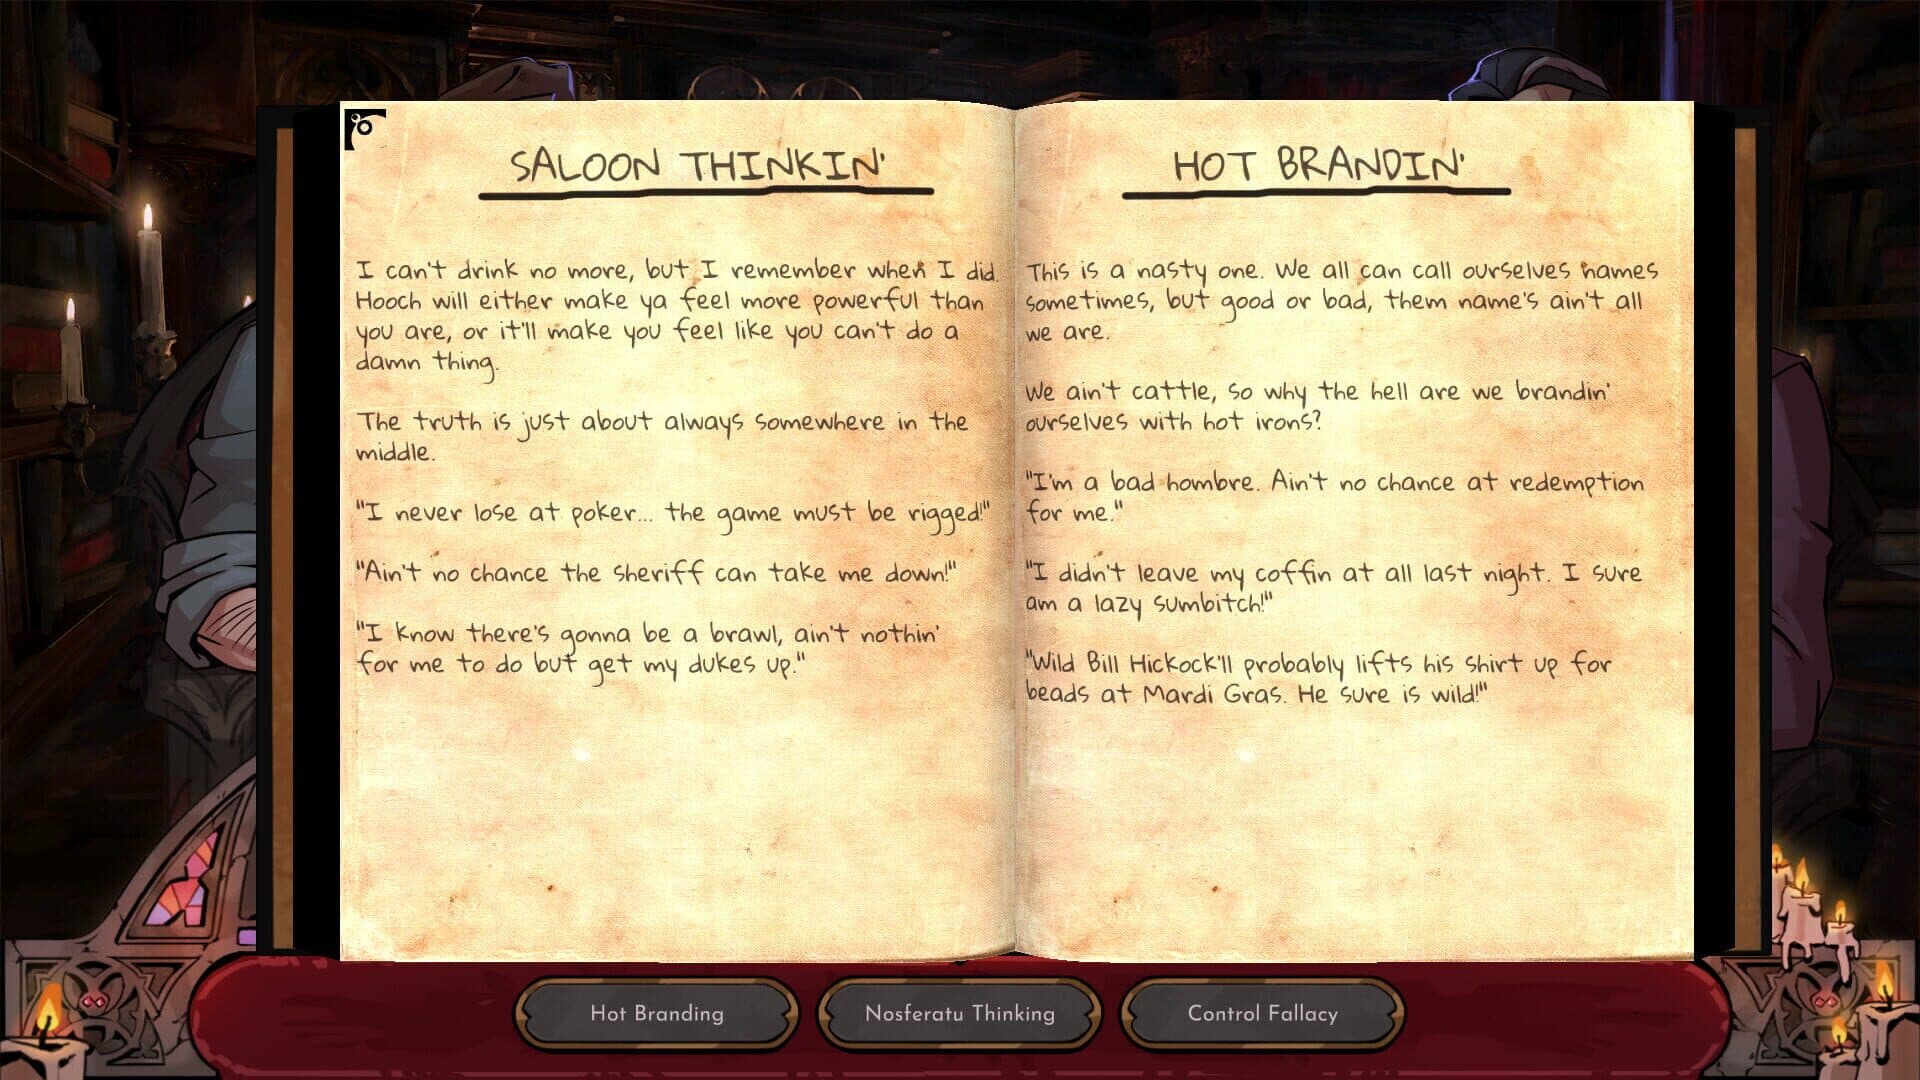 SALOON THINKIN'
I can't drink no more, but I remember when I did.
Hooch will either make ya feel more powerful than
you are, or it'll make you feel like you can't do a
damn thing.
The truth is just about always somewhere in the
middle.
"I never lose at poker... the game must be rigged!"
"Ain't no chance the sheriff can take me down!"
"I know there's gonna be a brawl, ain't nothin'
for me to do but get my dukes up."
HOT BRANDIN'
This is a nasty one. We all can call ourselves names
sometimes, but good or bad, them name's ain't all
we are.
We ain't cattle, so why the hell are we brandin'
ourselves with hot irons?
"I'm a bad hombre. Ain't no chance at redemption
for me."
"I didn't leave my coffin at all last night. I sure
am a lazy sumbitch!"
"Wild Bill Hickock'll probably lifts his shirt up for
beads at Mardi Gras. He sure is wild!"
Hot Branding
Nosferatu Thinking
Control Fallacy